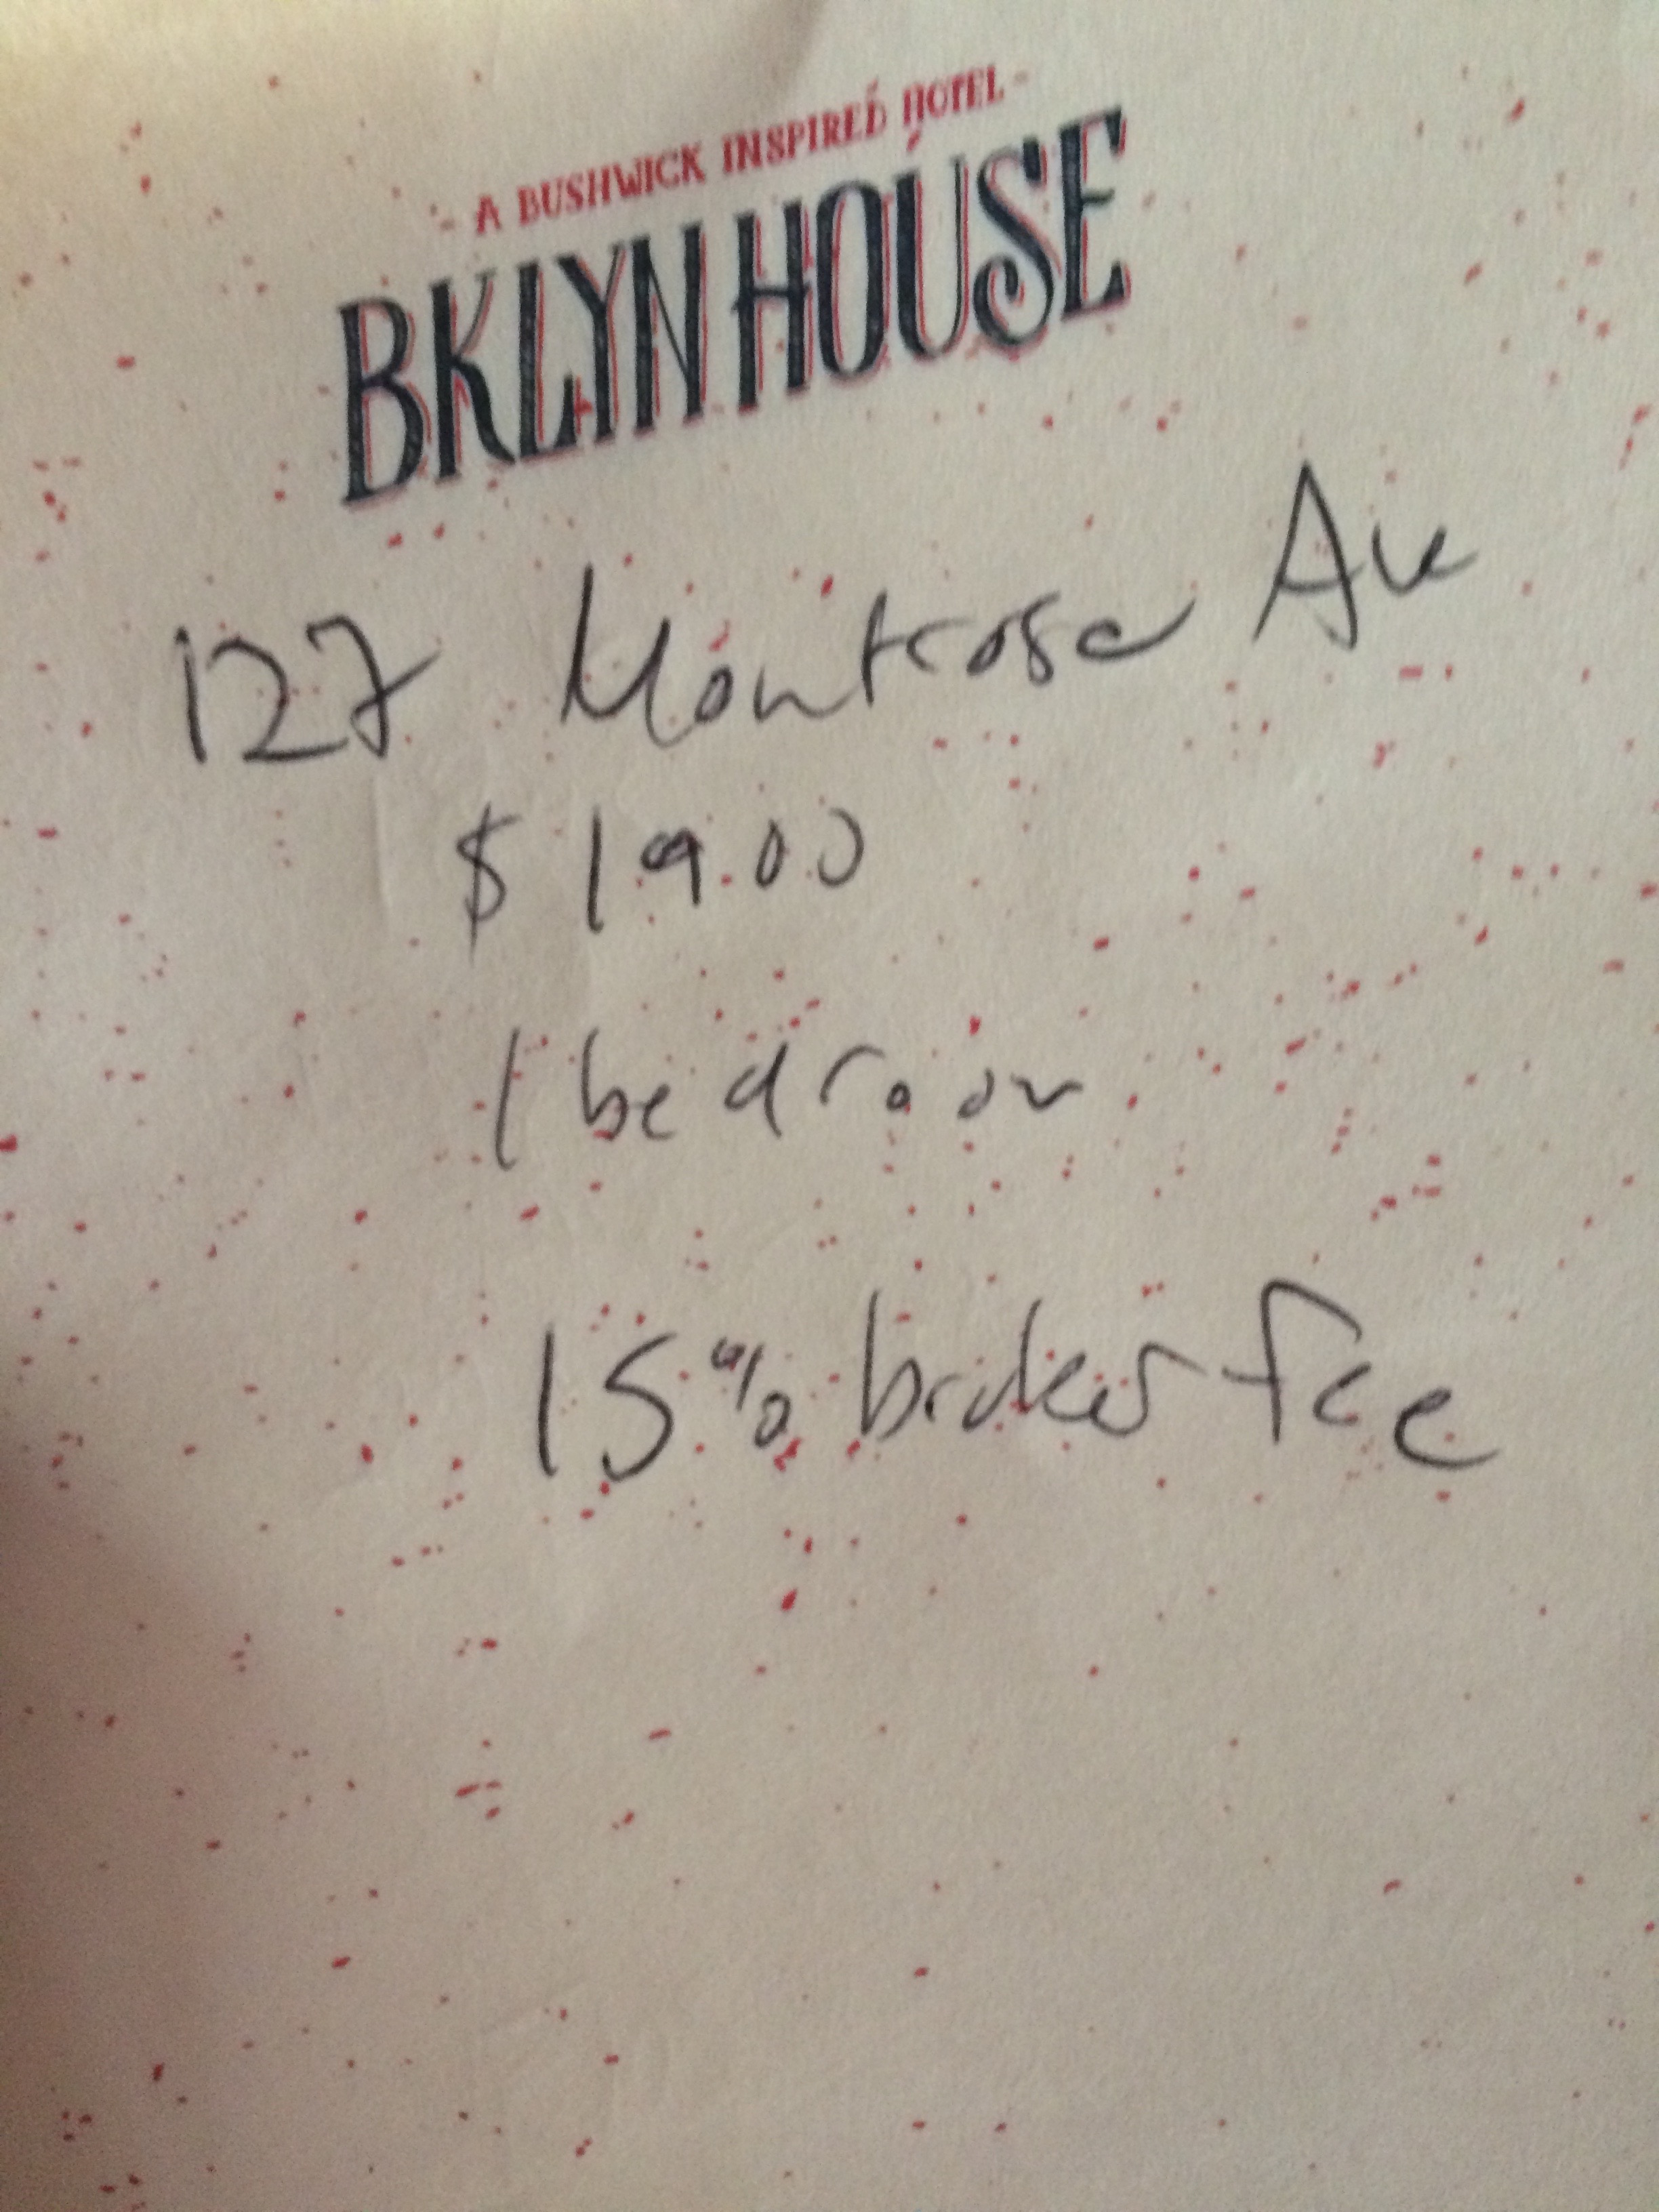 - A BUSHWICK INSPIRED HOTEL -
BKLYN HOUSE
127 Montrose Ave
$1900
1 bedroom
15% broker fee